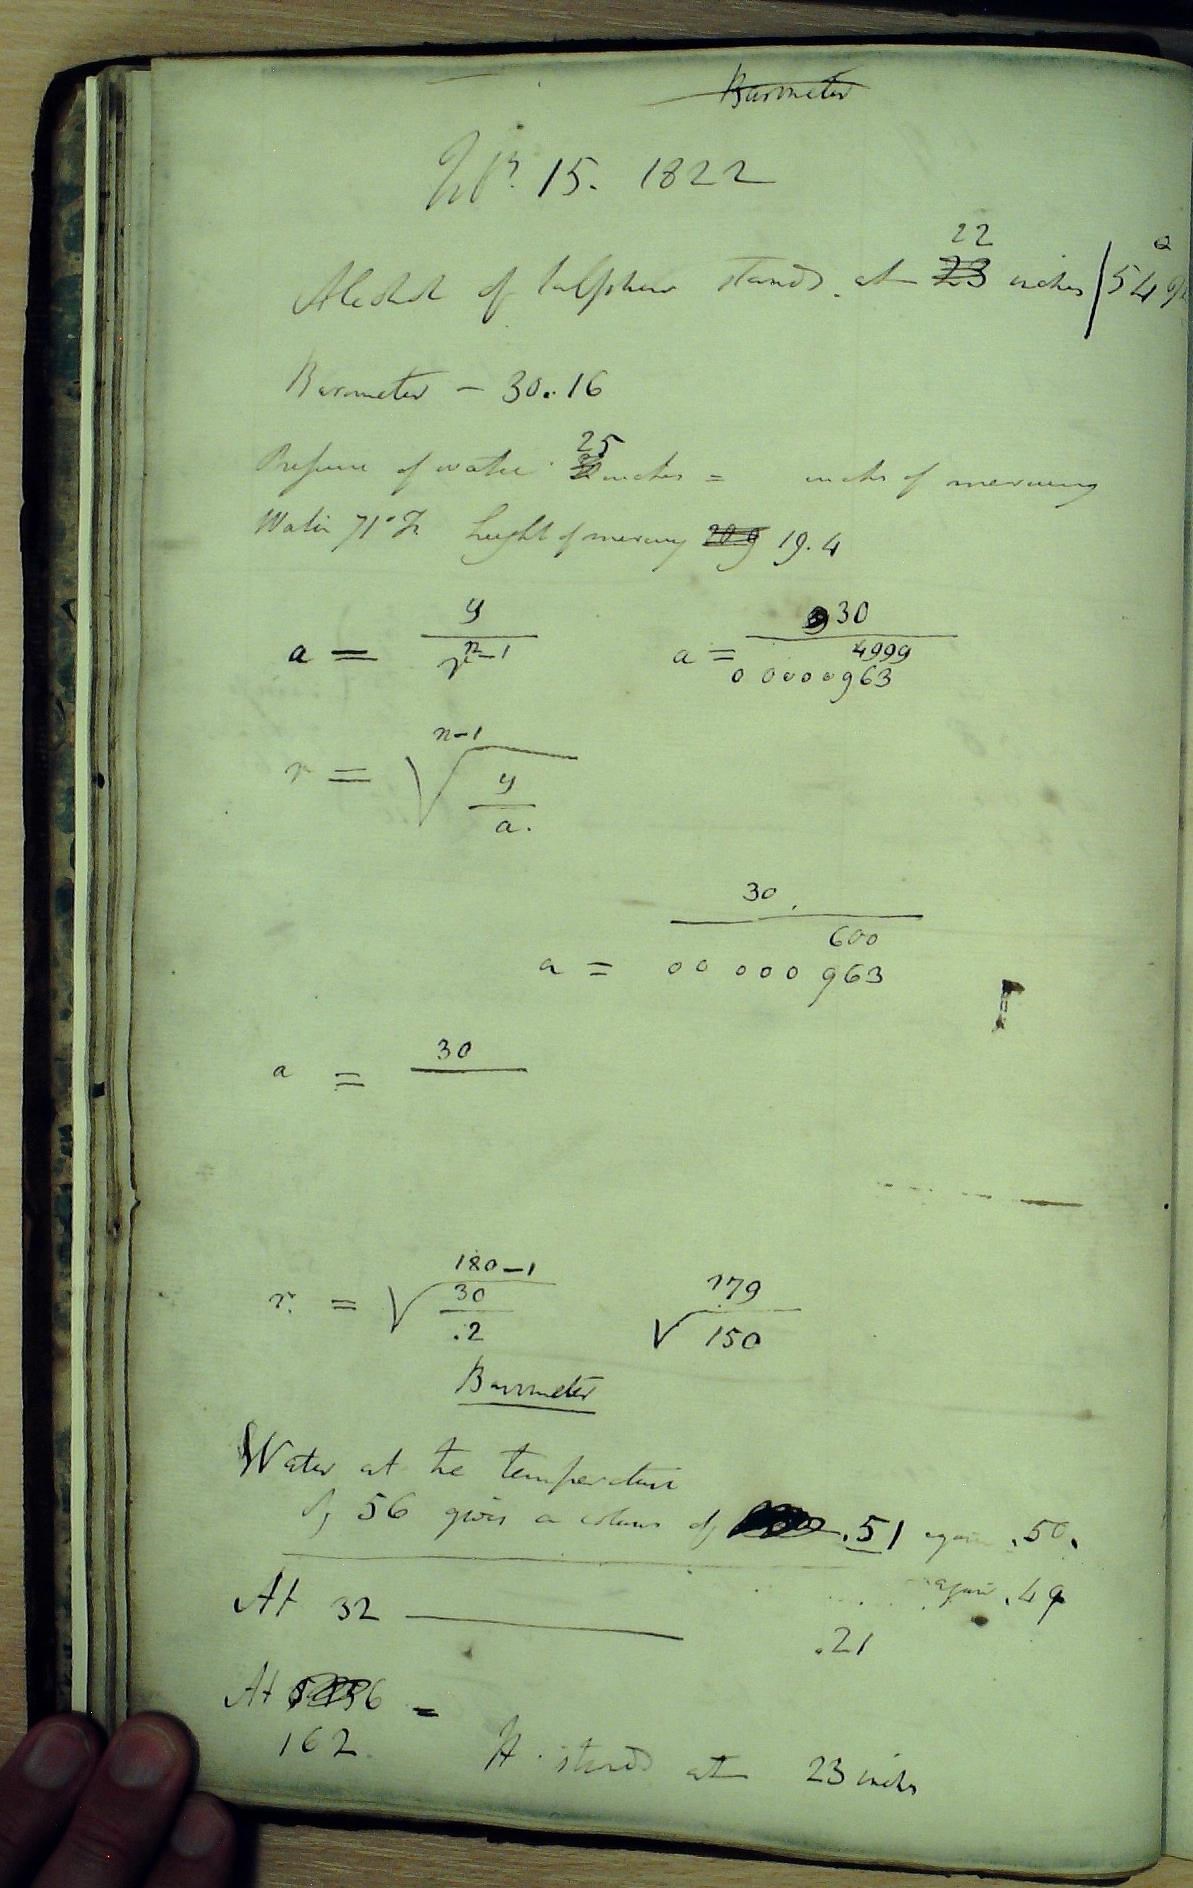 Barometer
15. 1822
22
Alcohol of Sulphur stands at 23 inches | 54
Barometer - 30.16
25
Pressure of water inches = inches of mercury
Water 71° F. height of mercury 20 9 19.4
a = y / r^n-1    a = 30 / 0 0000963^4999
n-1
r = √ y / a.
30.
600
a = 00 000 963
a = 30
r. = √ 30 / .2 ^180-1    179 √ 150
Barometer
Water at the temperature
of 56 gives a column of .51 again .50.
again .49
At 32 —— .21
At 56 =
162. H. stands at 23 inches